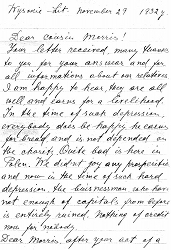 Wysokie-Lit. November 29 1932 y
Dear cousin Morris!
Your letter received, many thanks
to you for your answear and for
all informations about our relatives
I am happy to hear they are all
well and earns for a livelihood.
In the time of such depression,
everybody does be happy he earns
for bread and is not depended on
the charity. Quite bad is here in
Polen. We didn't joy any properities
and now in the time of such hard
depression the buisnessman who have
not enough of capitals from before
is entirely ruined. Nothing of credit
now for nobody.
Dear Morris, after your act of a